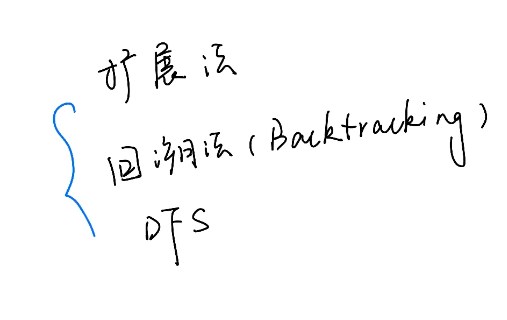 扩展法
回溯法(Backtracking)
DFS